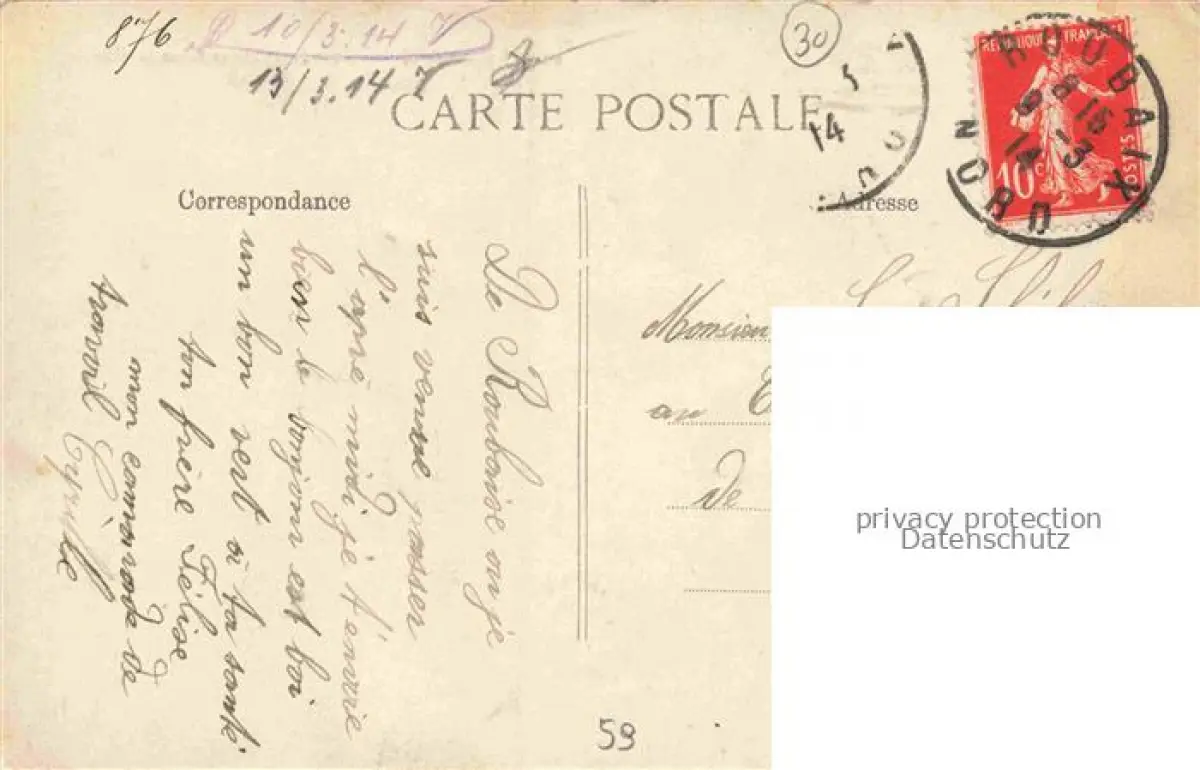 876
R 10/3.14 7
13/3.14 7
30
CARTE POSTALE
REPUBLIQUE FRANÇAISE
10c
POSTES
ROUBAIX
8 15
9 -3
14
NORD
14
Correspondance
Adresse
De Roubaise ou je
suis venue passer
l'aprè midi je t'envoie
bien le bonjour est boi
un bon vert à ta santé
ton frère Félise
mon camarade de
travail
Monsieur
au
de
privacy protection
Datenschutz
59